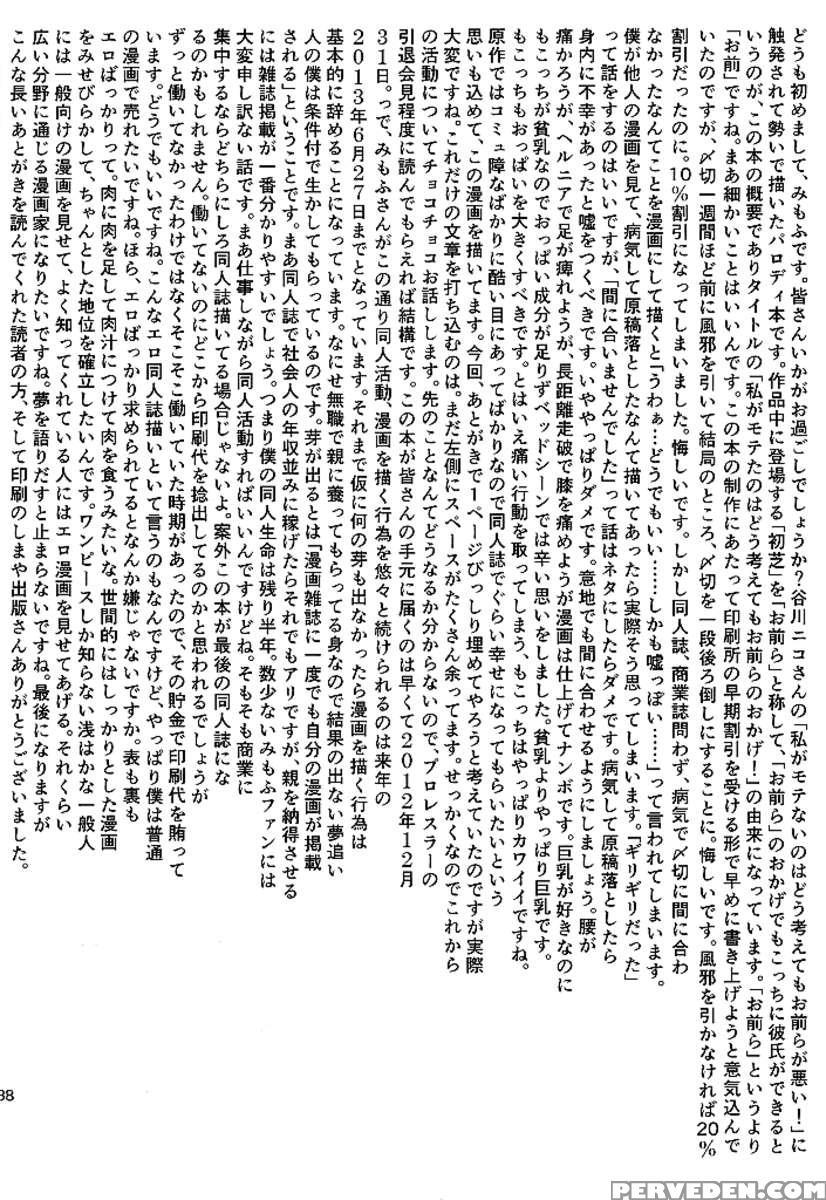 どうも初めまして、みもふです。皆さんいかがお過ごしでしょうか？谷川ニコさんの「私がモテないのはどう考えてもお前らが悪い！」に
触発されて勢いで描いたパロディ本です。作品中に登場する「初芝」を「お前ら」と称して、「お前ら」のおかげでもこっちに彼氏ができると
いうのが、この本の概要でありタイトルの「私がモテたのはどう考えてもお前らのおかげ！」の由来になっています。「お前ら」というより
「お前」ですね。まあ細かいことはいいんです。この本の制作にあたって印刷所の早期割引を受ける形で早めに書き上げようと意気込んで
いたのですが、〆切一週間ほど前に風邪を引いて結局のところ、〆切を一段後ろ倒しにすることに。悔しいです。風邪を引かなければ20％
割引だったのに。10％割引になってしまいました。悔しいです。しかし同人誌、商業誌問わず、病気で〆切に間に合わ
なかったなんてことを漫画にして描くと「うわぁ…どうでもいい……しかも嘘っぽい……」って言われてしまいます。
僕が他人の漫画を見て、病気して原稿落としたなんて描いてあったら実際そう思ってしまいます。「ギリギリだった」
って話をするのはいいですが、「間に合いませんでした」って話はネタにしたらダメです。病気して原稿落としたら
身内に不幸があったと嘘をつくべきです。いややっぱりダメです。意地でも間に合わせるようにしましょう。腰が
痛かろうが、ヘルニアで足が痺れようが、長距離走破で膝を痛めようが漫画は仕上げてナンボです。巨乳が好きなのに
もこっちが貧乳なのでおっぱい成分が足りずベッドシーンでは辛い思いをしました。貧乳よりやっぱり巨乳です。
もこっちもおっぱいを大きくすべきです。とはいえ痛い行動を取ってしまう、もこっちはやっぱりカワイイですね。
原作ではコミュ障なばかりに酷い目にあってばかりなので同人誌でぐらい幸せになってもらいたいという
思いも込めて、この漫画を描いてます。今回、あとがきで1ページびっしり埋めてやろうと考えていたのですが実際
大変ですね。これだけの文章を打ち込むのは。まだ左側にスペースがたくさん余ってます。せっかくなのでこれから
の活動についてチョコチョコお話しします。先のことなんてどうなるか分からないので、プロレスラーの
引退会見程度に読んでもらえれば結構です。この本が皆さんの手元に届くのは早くて2012年12月
31日。っで、みもふさんがこの通り同人活動、漫画を描く行為を悠々と続けられるのは来年の
2013年6月27日までとなっています。それまで仮に何の芽も出なかったら漫画を描く行為は
基本的に辞めることになっています。なにせ無職で親に養ってもらってる身なので結果の出ない夢追い
人の僕は条件付で生かしてもらっているのです。芽が出るとは「漫画雑誌に一度でも自分の漫画が掲載
される」ということです。まあ同人誌で社会人の年収並みに稼げたらそれでもアリですが、親を納得させる
には雑誌掲載が一番分かりやすいでしょう。つまり僕の同人生命は残り半年。数少ないみもふファンには
大変申し訳ない話です。まあ仕事しながら同人活動すればいいんですけどね。そもそも商業に
集中するならどちらにしろ同人誌描いてる場合じゃないよ。案外この本が最後の同人誌にな
るのかもしれません。働いてないのにどこから印刷代を捻出してるのかと思われるでしょうが
ずっと働いてなかったわけではなくそこそこ働いていた時期があったので、その貯金で印刷代を賄って
います。どうでもいいですね。こんなエロ同人誌描いといて言うのもなんですけど、やっぱり僕は普通
の漫画で売れたいですね。ほら、エロばっかり求められてるとなんか嫌じゃないですか。表も裏も
エロばっかりって。肉に肉を足して肉汁につけて肉を食うみたいな。世間的にはしっかりとした漫画
をみせびらかして、ちゃんとした地位を確立したいんです。ワンピースしか知らない浅はかな一般人
には一般向けの漫画を見せて、よく知ってくれている人にはエロ漫画を見せてあげる。それくらい
広い分野に通じる漫画家になりたいですね。夢を語りだすと止まらないですね。最後になりますが
こんな長いあとがきを読んでくれた読者の方、そして印刷のしまや出版さんありがとうございました。
38
PERVEDEN.COM